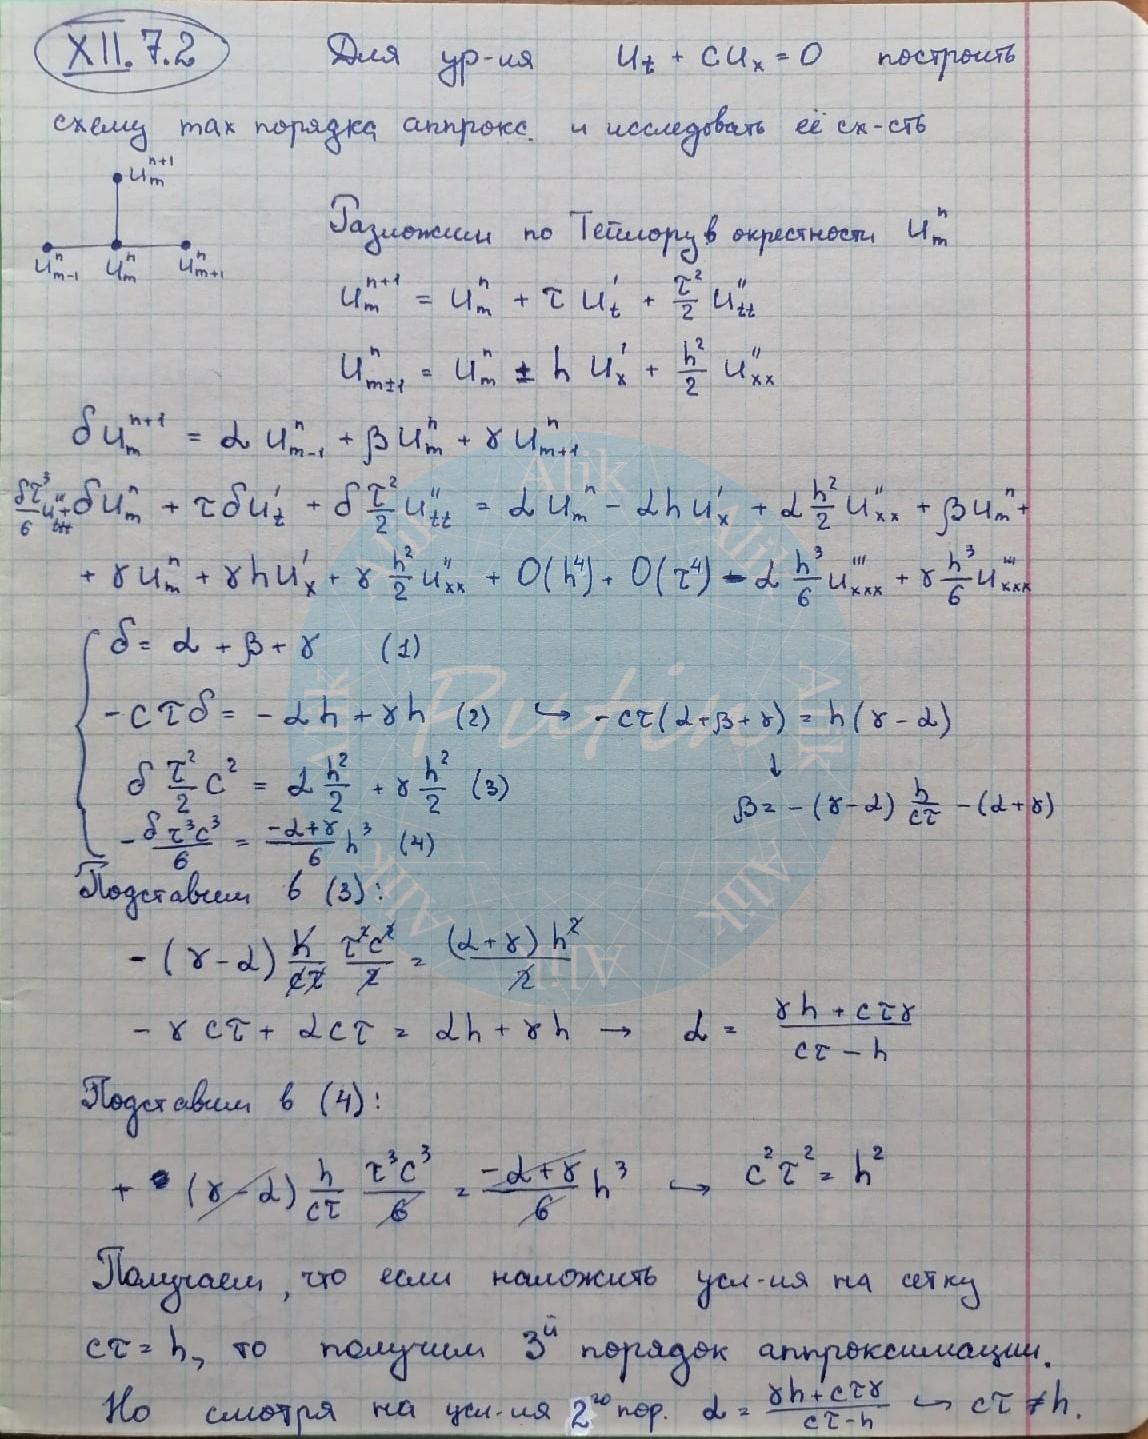 XII.7.2 Для ур-ия u_t + cu_x = 0 построить
схему max порядка аппрокс. и исследовать её сх-сть
u_m^{n+1}
u_{m-1}^n u_m^n u_{m+1}^n
Разложим по Тейлору в окрестности u_m^n
u_m^{n+1} = u_m^n + τ u_t' + τ²/2 u_tt''
u_{m±1}^n = u_m^n ± h u_x' + h²/2 u_xx''
δu_m^{n+1} = α u_{m-1}^n + β u_m^n + γ u_{m+1}^n
δτ³/6 u_ttt''' + δu_m^n + τδu_t' + δ τ²/2 u_tt'' = α u_m^n - αh u_x' + α h²/2 u_xx'' + β u_m^n +
+ γ u_m^n + γh u_x' + γ h²/2 u_xx'' + O(h⁴) + O(τ⁴) - α h³/6 u_xxx''' + γ h³/6 u_xxx'''
δ = α + β + γ (1)
-cτδ = -αh + γh (2) ↪ -cτ(α+β+γ) = h(γ - α)
δ τ²/2 c² = α h²/2 + γ h²/2 (3)
↓
β = -(γ-α) h/cτ - (α+γ)
-δτ³c³/6 = (-α+γ)/6 h³ (4)
Подставим в (3):
-(γ-α) h/cτ τ²c²/2 = (α+γ)h²/2
-γcτ + αcτ = αh + γh → α = (γh + cτγ)/(cτ - h)
Подставим в (4):
+ (γ-α) h/cτ τ³c³/6 = (-α+γ)/6 h³ ↪ c²τ² = h²
Получаем, что если наложить усл-ия на сетку
cτ = h, то получим 3й порядок аппроксимации.
Но смотря на усл-ия 2го пор. α = (γh+cτγ)/(cτ-h) ↪ cτ ≠ h.
Alik
Alik
Alik
Alik
Alik
Alik
Alik
Alik
Putin